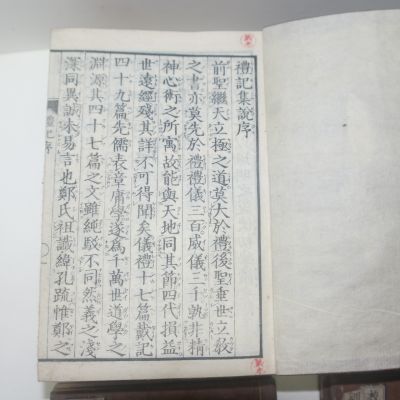 禮記集說序
前聖繼天立極之道莫大於禮後聖垂世立敎
之書亦莫先於禮禮儀三百威儀三千孰非精
神心術之所寓故能與天地同其節四代損益
世遠經殘其詳不可得聞矣儀禮十七篇戴記
四十九篇先儒表章庸學遂爲千萬世道學之
淵源其四十七篇之文雖純駁不同然義之淺
深同異誠未易言也鄭氏祖讖緯孔疏惟鄭之
禮記序